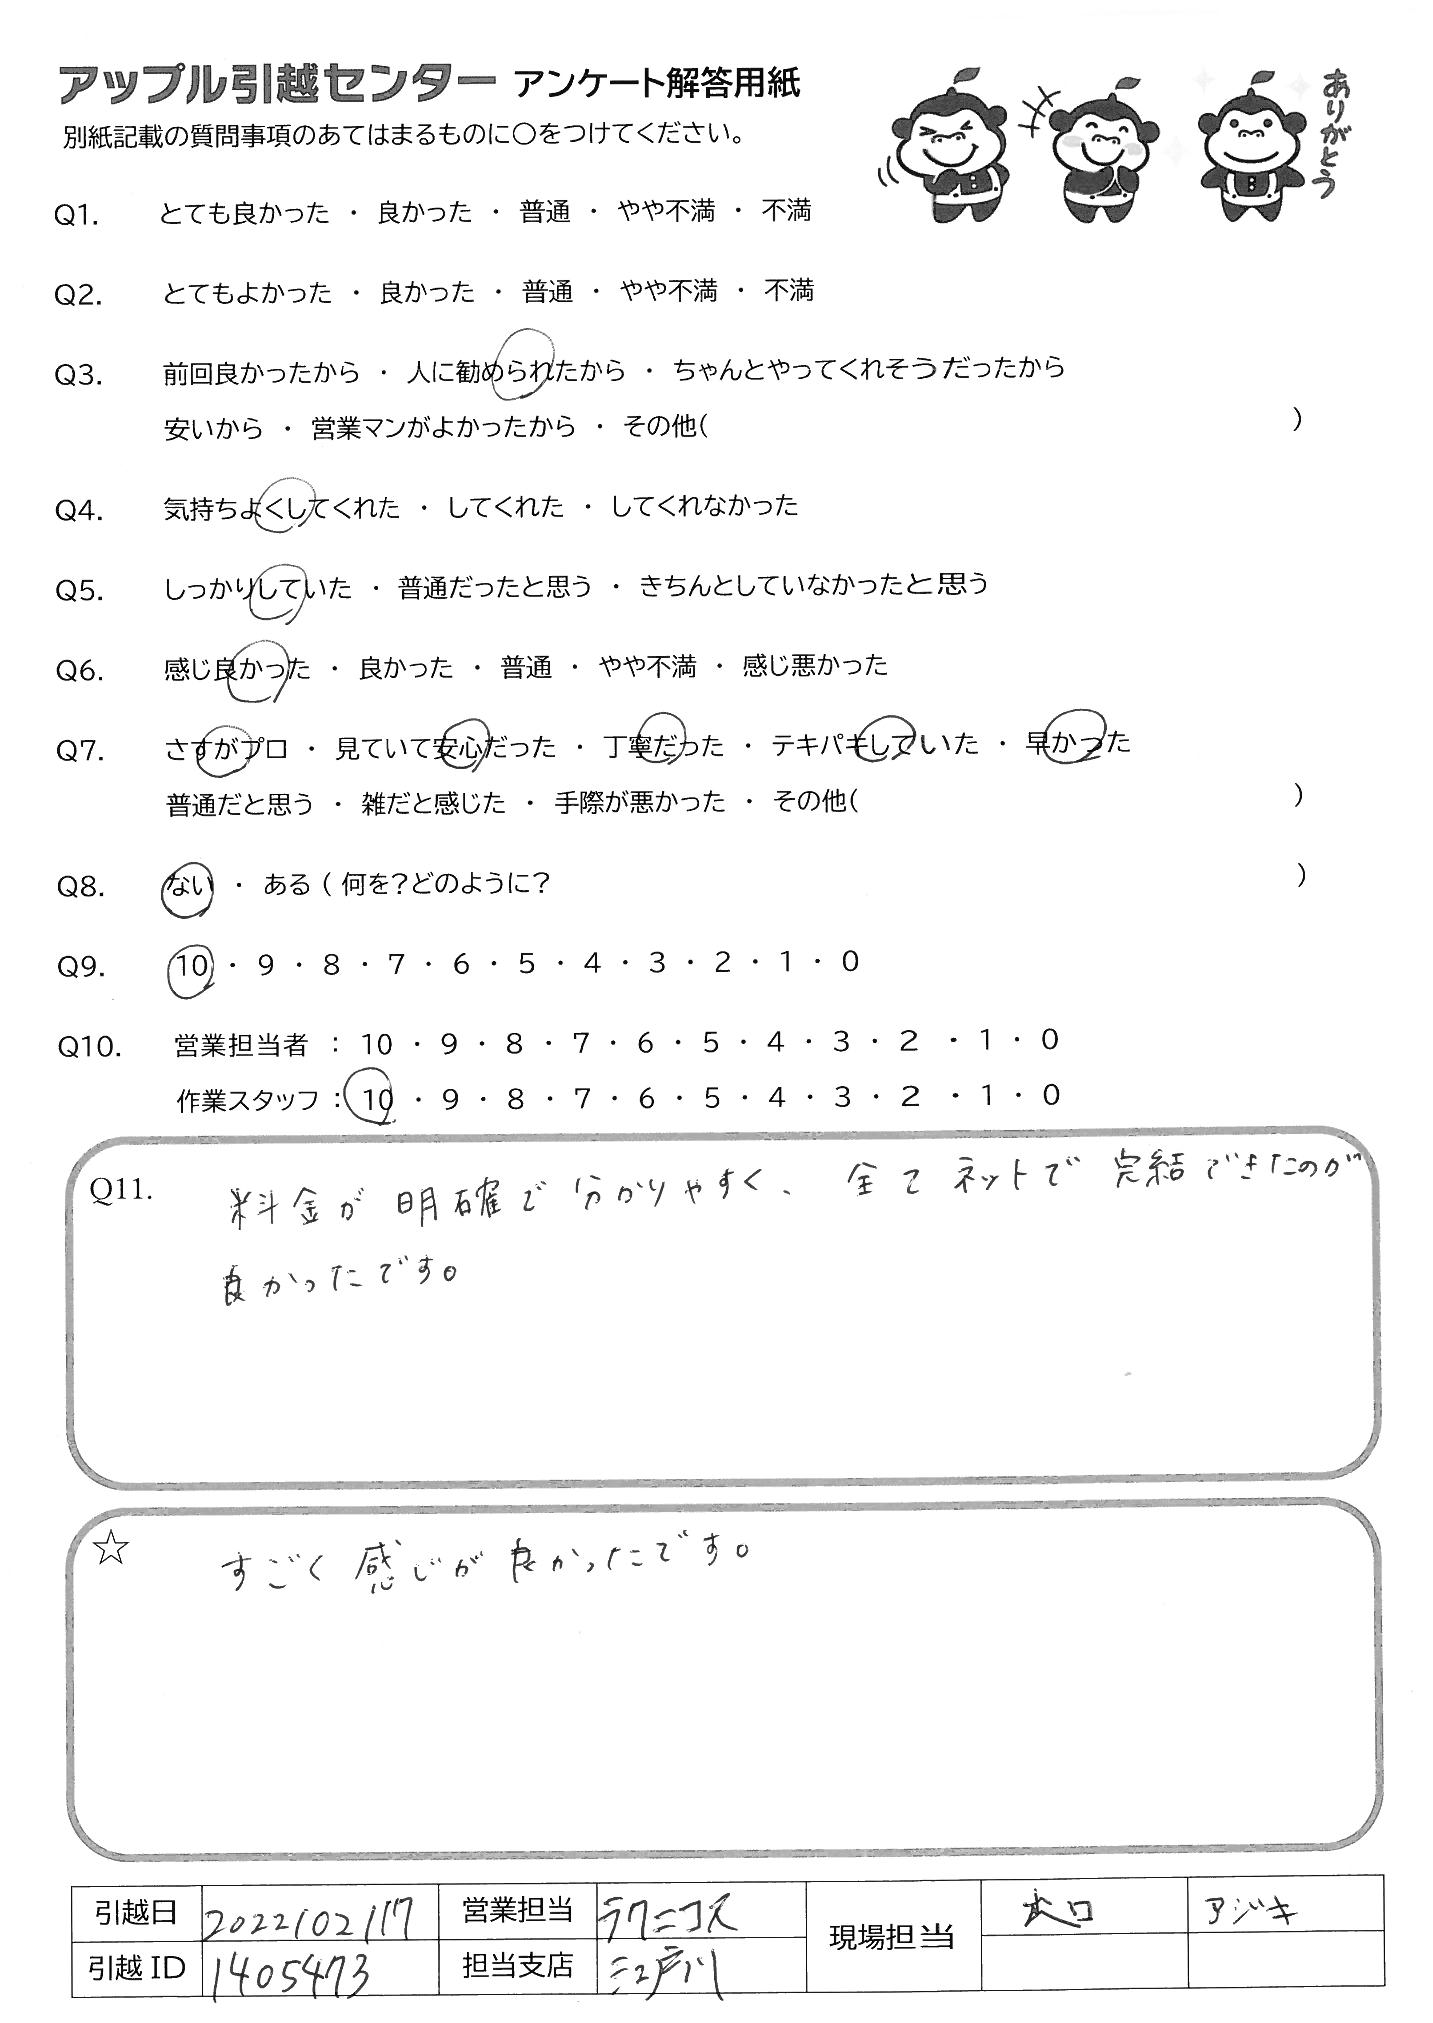 アップル引越センター アンケート解答用紙
ありがとう
別紙記載の質問事項のあてはまるものに〇をつけてください。
Q1. とても良かった ・ 良かった ・ 普通 ・ やや不満 ・ 不満
Q2. とてもよかった ・ 良かった ・ 普通 ・ やや不満 ・ 不満
Q3. 前回良かったから ・ 人に勧められたから ・ ちゃんとやってくれそうだったから
安いから ・ 営業マンがよかったから ・ その他( )
Q4. 気持ちよくしてくれた ・ してくれた ・ してくれなかった
Q5. しっかりしていた ・ 普通だったと思う ・ きちんとしていなかったと思う
Q6. 感じ良かった ・ 良かった ・ 普通 ・ やや不満 ・ 感じ悪かった
Q7. さすがプロ ・ 見ていて安心だった ・ 丁寧だった ・ テキパキしていた ・ 早かった
普通だと思う ・ 雑だと感じた ・ 手際が悪かった ・ その他( )
Q8. ない ・ ある ( 何を?どのように? )
Q9. 10 ・ 9 ・ 8 ・ 7 ・ 6 ・ 5 ・ 4 ・ 3 ・ 2 ・ 1 ・ 0
Q10. 営業担当者 : 10 ・ 9 ・ 8 ・ 7 ・ 6 ・ 5 ・ 4 ・ 3 ・ 2 ・ 1 ・ 0
作業スタッフ : 10 ・ 9 ・ 8 ・ 7 ・ 6 ・ 5 ・ 4 ・ 3 ・ 2 ・ 1 ・ 0
Q11. 料金が明確で分かりやすく、全てネットで完結できたのが
良かったです。
☆ すごく感じが良かったです。
引越日 2022/02/17 営業担当 ラクニコス 現場担当 アジキ
引越ID 1405473 担当支店 江戸川